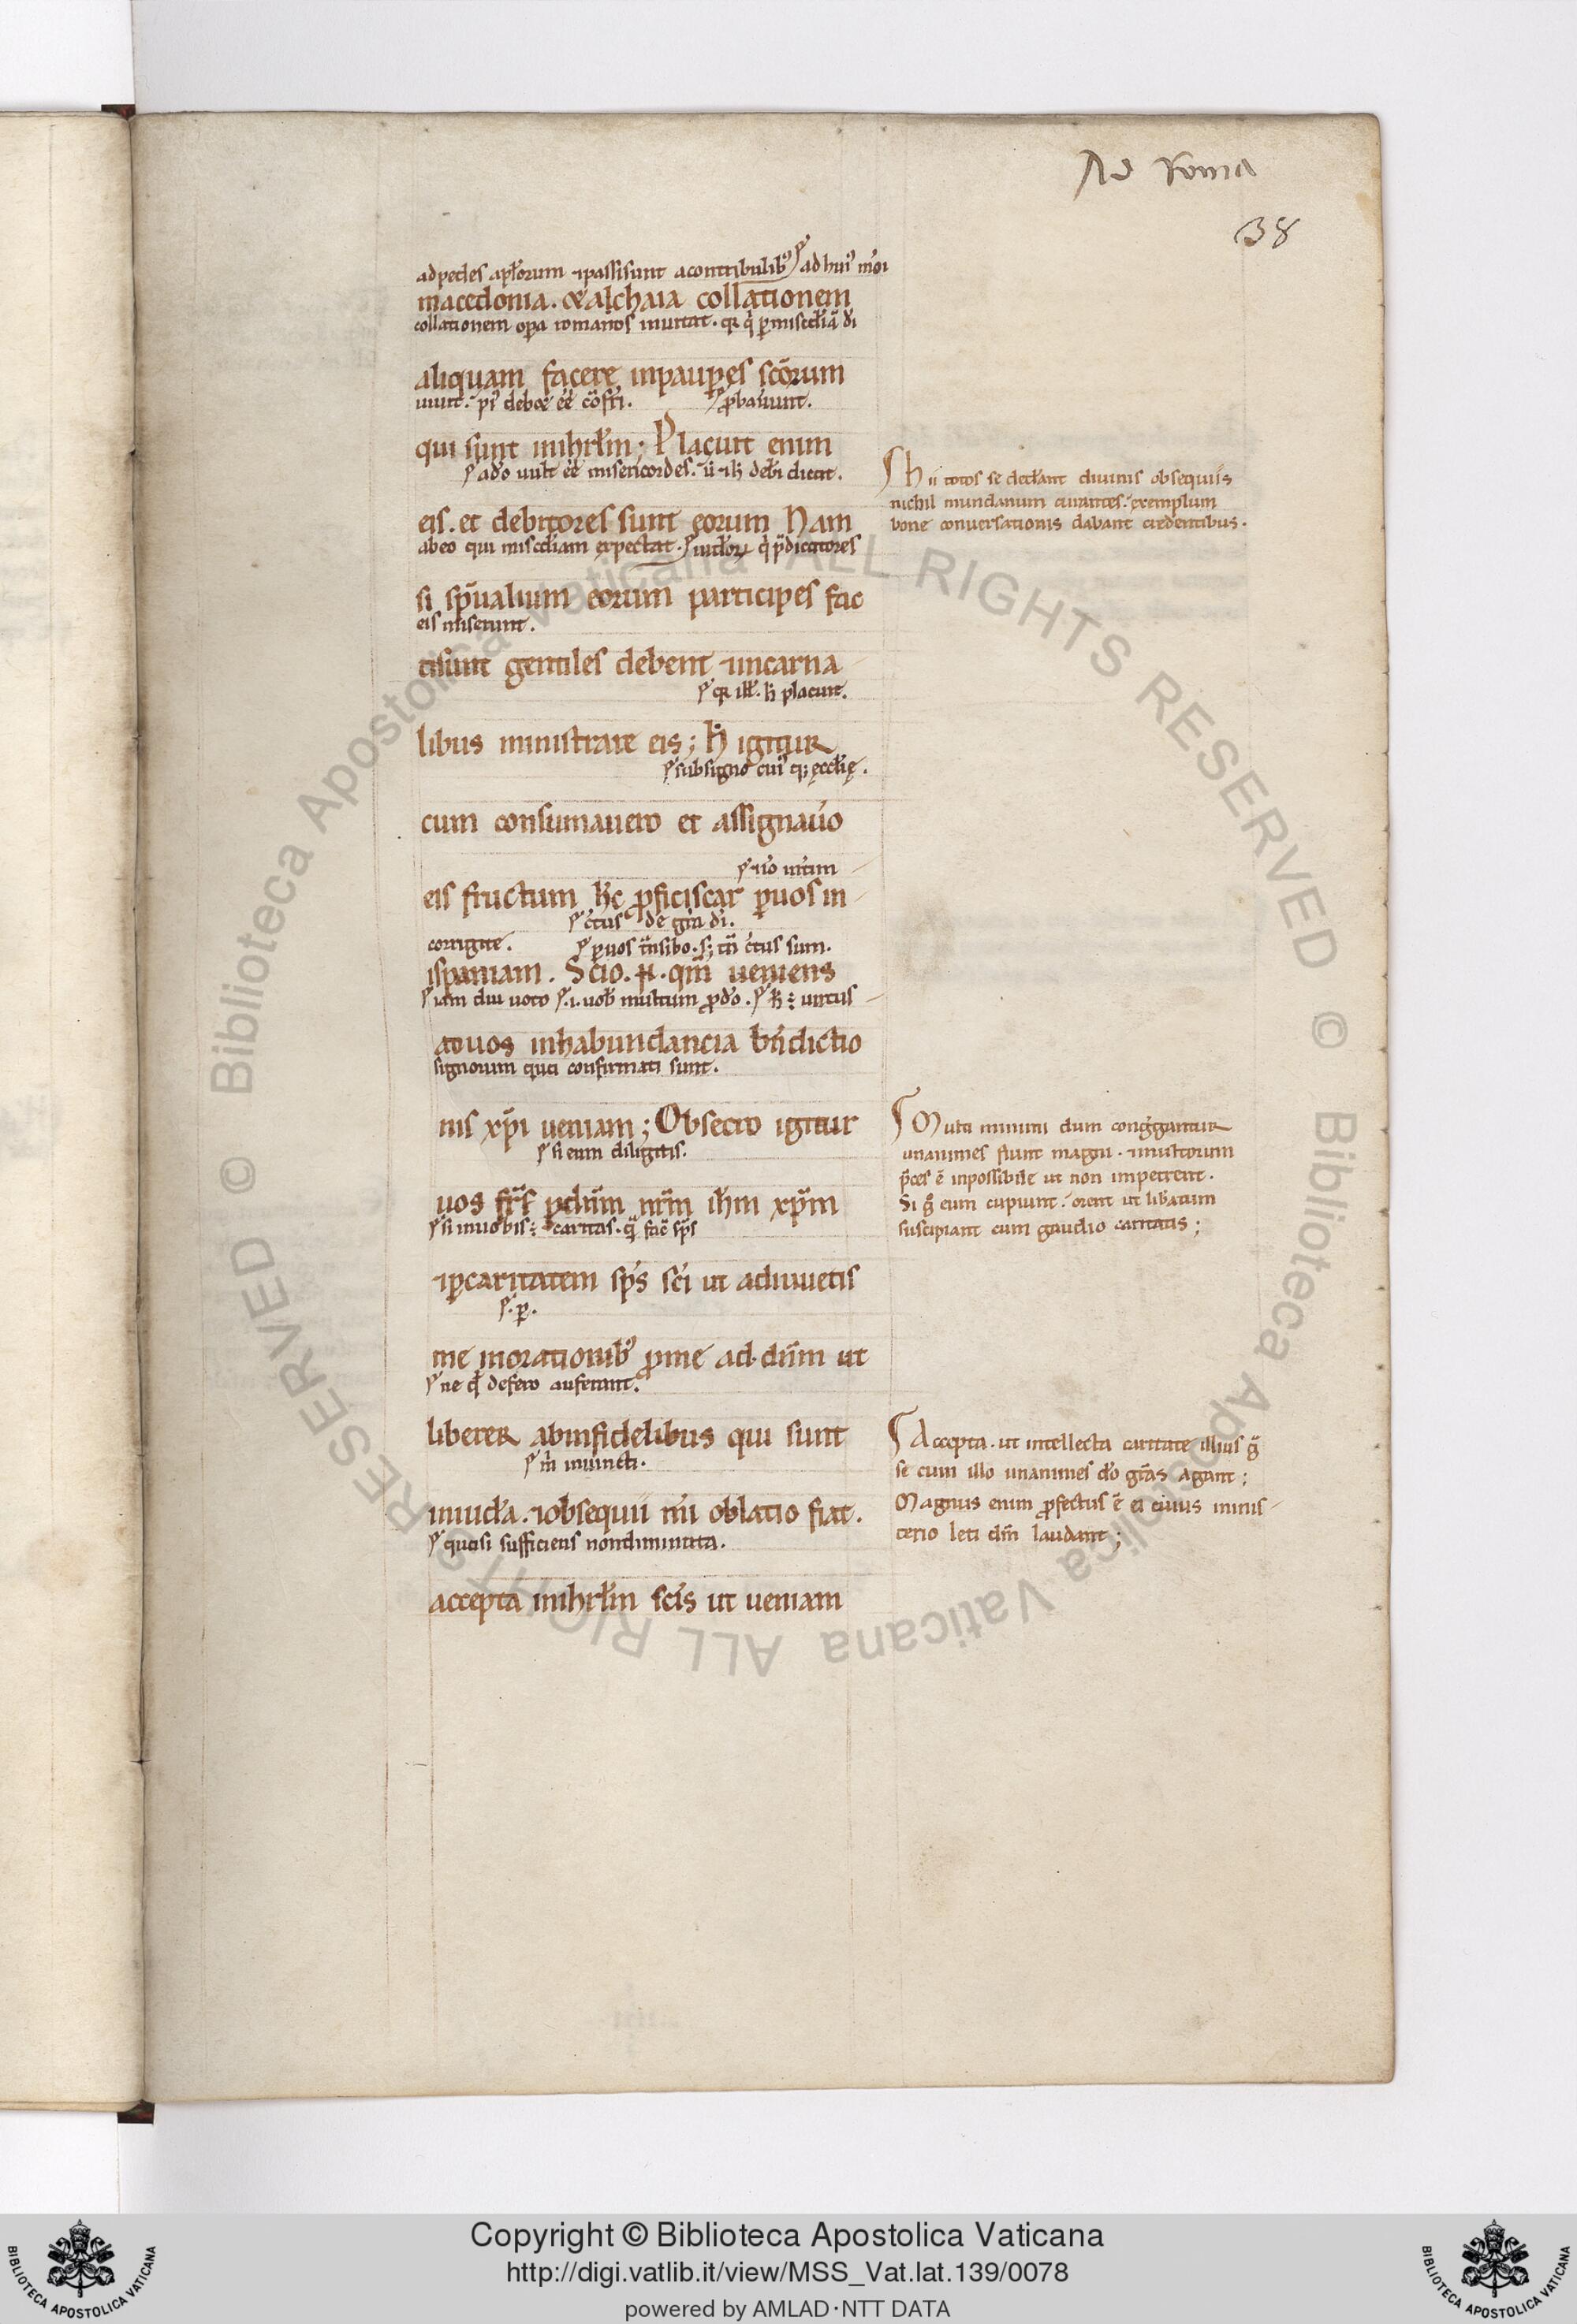 Ad Roma
38
ad pedes apl̄orum ⁊passisunt acontribulib; ad hui' m̄oi
macedonia. & alchaia collationem
collationem opa romanos inuitat. qr q̄ p miscd̄iā d̄i
aliquam facere inpauꝑes scōrum
uiuit. p̄i' debēt ēē cōsn̄. ꝓbauerunt.
qui sunt inihrl̄m; Placuit enim
adō uult ēē misericordes. ū ⁊ h̄ deb̄i dicit.
eis. et debitores sunt eorum Nam
abeo qui miscd̄iam expectat. iudeoꝝ q̄ p̄dicatores
si sp̄ualium eorum participes fac
eis miserunt.
tisunt gentiles debent ⁊incarna
qr ill'. h̄ placuit.
libus ministrare eis; h̄ igitur
subsigno cui' q; ęccl̄ię.
cum consumauero et assignau̅o
⁊iō utim
eis fructum h̄c ꝓficiscar ꝑuosin
c̄tus de gr̄a dī.
corrigite. ꝑuos t̄nsibo. s; tn̄ c̄tus sum.
ispaniam. Scio. H. qm̄ ueniens
iam diu uoco .i. uob̄ multum ꝓdō. h̄ ē uirtus
aduos inhabundancia bn̄dictio
signorum quā confirmati sunt.
nis xp̄i ueniam; Obsecro igitur
si eum diligitis.
uos fr̄s ꝑdn̄m nr̄m ih̄m xp̄m
si inuobis ē caritas. q̄ facit sp̄s
⁊ꝑcaritatem sp̄s sc̄i ut adiuuetis
.ꝑ.
me inorationib; ꝓme ad dn̄m ut
ne q̄ defero auferant.
liberer abinfidelibus qui sunt
m̄ inuincti.
iniudēa. ⁊obsequii mī oblatio fiat.
quasi sufficiens nondiminuta.
accepta inihrl̄m sc̄is ut ueniam
Hii totos se ded̄ant diuinis obsequiis
nichil mundanum curantes. exemplum
bone conuersationis dabant credentibus.
Multi minimi dum cong̃gantur
unanimes fiunt magni. ⁊multorum
p̄ces ē inpossibile ut non impetrent.
Si g̊ eum cupiunt. orent ut lib̄atum
suscipiant cum gaudio caritatis;
Accepta. ut intellecta caritate illius g̃
se cum illo unanimes dō gr̄as agant;
Magnus enim ꝓfectus ē ei cuius minis
terio leti dm̄ laudant;
© Biblioteca Apostolica Vaticana ALL RIGHTS RESERVED © Biblioteca Apostolica Vaticana ALL RIGHTS RESERVED
BIBLIOTECA APOSTOLICA VATICANA
Copyright © Biblioteca Apostolica Vaticana
http://digi.vatlib.it/view/MSS_Vat.lat.139/0078
powered by AMLAD·NTT DATA
BIBLIOTECA APOSTOLICA VATICANA